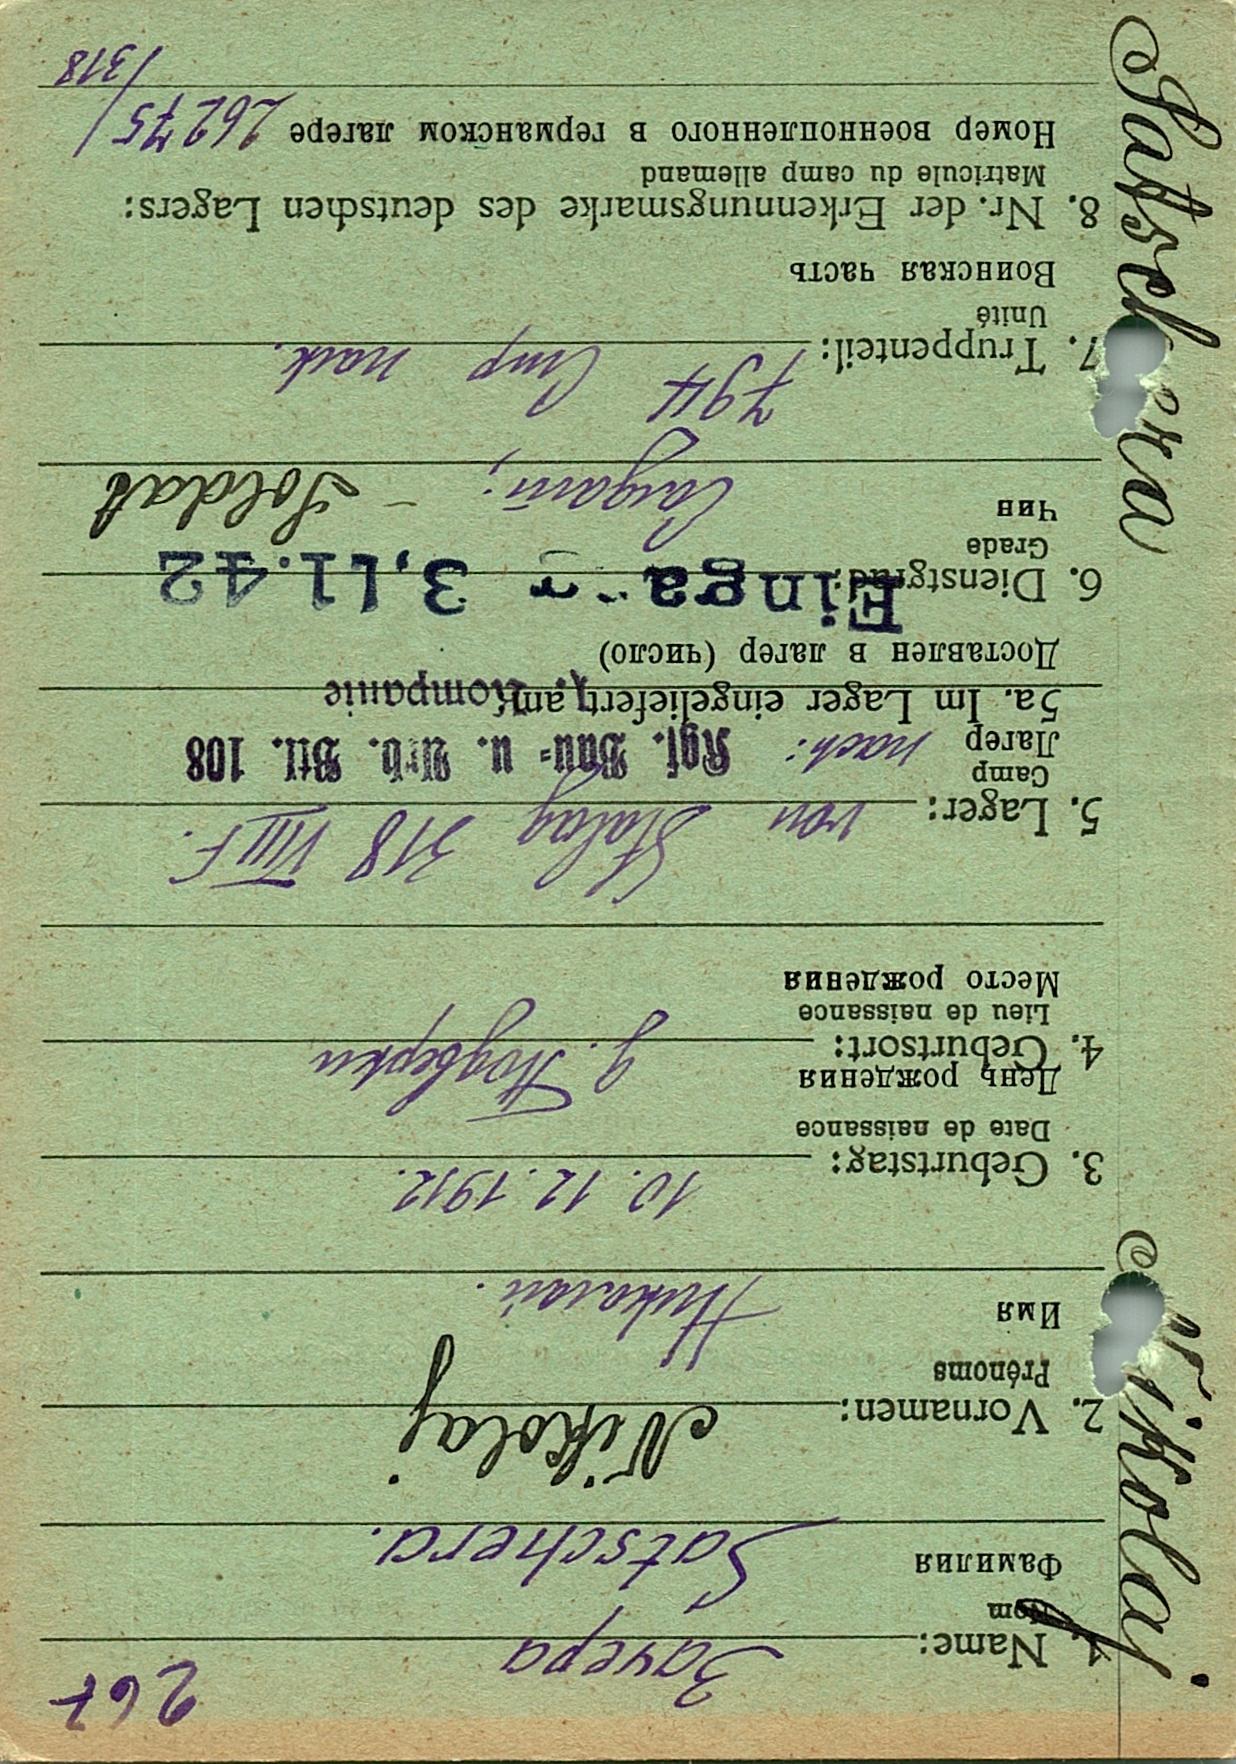 267
1. Name: Зачера
Nom
Фамилия
Satschera.
2. Vornamen: Nikolaj
Prénoms
Имя
Николай.
3. Geburtstag: 10.12.1912.
Date de naissance
День рождения
4. Geburtsort: д. Подверки
Lieu de naissance
Место рождения
5. Lager: von Stalag 318 VIII F.
Camp
Лагер nach: Kgf. Bau= u. Arb. Btl. 108
5a. Im Lager eingeliefert am Kompanie
Доставлен в лагер (число)
6. Dienstgrad: 3.11.42
Grade
Чин
Солдат; - Soldat
7. Truppenteil: 794 Стр полк.
Unité
Воинская часть
8. Nr. der Erkennungsmarke des deutschen Lagers:
Matricule du camp allemand
Номер военнопленного в германском лагере 26275/
/318
Satschera Nikolaj